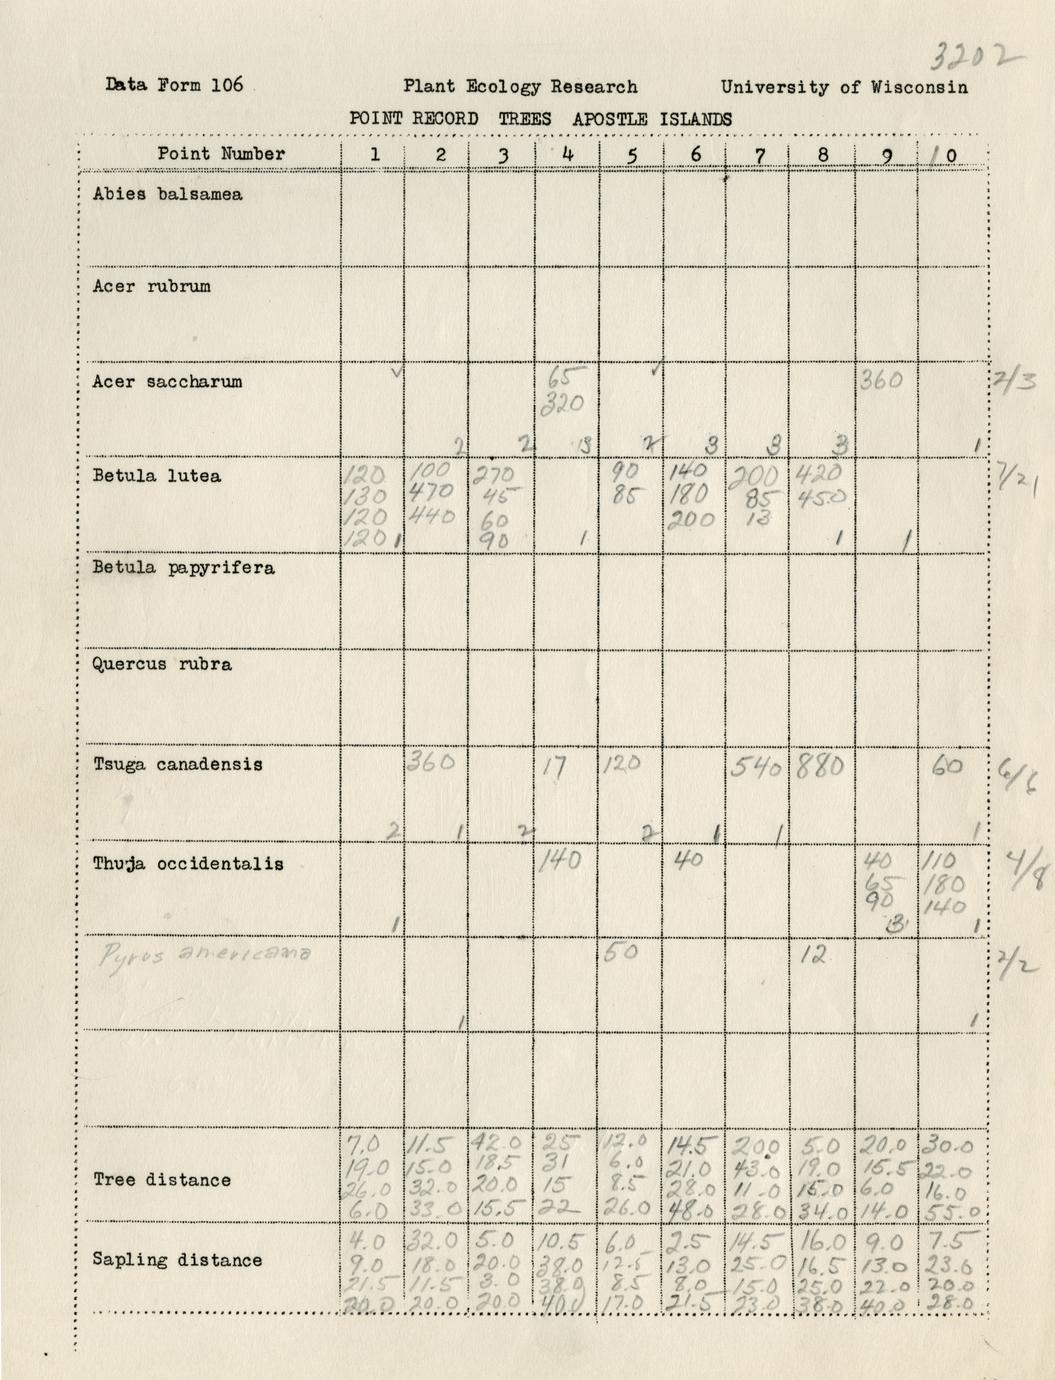 3202
Data Form 106 Plant Ecology Research University of Wisconsin
POINT RECORD TREES APOSTLE ISLANDS
Point Number 1 2 3 4 5 6 7 8 9 10
Abies balsamea
Acer rubrum
Acer saccharum ✓ 65 ✓ 360 2/3
320
2 2 3 2 3 3 3 1
Betula lutea 120 100 270 90 140 200 420 7/21
130 470 45 85 180 85 450
120 440 60 200 13
120 1 90 1 1 1
Betula papyrifera
Quercus rubra
Tsuga canadensis 360 17 120 540 880 60 6/6
2 1 2 2 1 1 1
Thuja occidentalis 140 40 40 110 4/8
65 180
90 140
1 3 1
Pyrus americana 50 12 2/2
1 1
7.0 11.5 42.0 25 12.0 14.5 200 5.0 20.0 30.0
19.0 15.0 18.5 31 6.0 21.0 43.0 19.0 15.5 22.0
Tree distance 26.0 32.0 20.0 15 8.5 28.0 11.0 15.0 6.0 16.0
6.0 33.0 15.5 22 26.0 48.0 28.0 34.0 14.0 55.0
4.0 32.0 5.0 10.5 6.0 2.5 14.5 16.0 9.0 7.5
Sapling distance 9.0 18.0 20.0 38.0 12.5 13.0 25.0 16.5 13.0 23.6
21.5 11.5 3.0 38.0 8.5 8.0 15.0 25.0 22.0 20.0
20.0 20.0 20.0 40.0 17.0 21.5 23.0 38.0 40.0 28.0